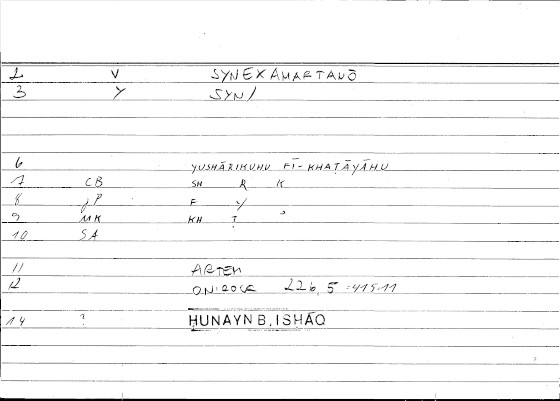 1 V SYNEXAMARTANŌ
3 Y SYN/
6 YUSHĀRIKUHU FĪ-KHAṬĀYĀHU
7 CB SH R K
8 jP F Y
9 MK KH Ṭ ʾ
10 SA
11 ARTEM
12 ONIROCR 226,5 :415.11
14 ? HUNAYN B. ISHĀQ